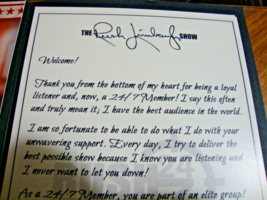 THE Rush Limbaugh SHOW
Welcome!
Thank you from the bottom of my heart for being a loyal
listener and, now, a 24/7 Member! I say this often
and truly mean it; I have the best audience in the world.
I am so fortunate to be able to do what I do with your
unwavering support. Every day, I try to deliver the
best possible show because I know you are listening and
I never want to let you down!
As a 24/7 Member, you are part of an elite group!